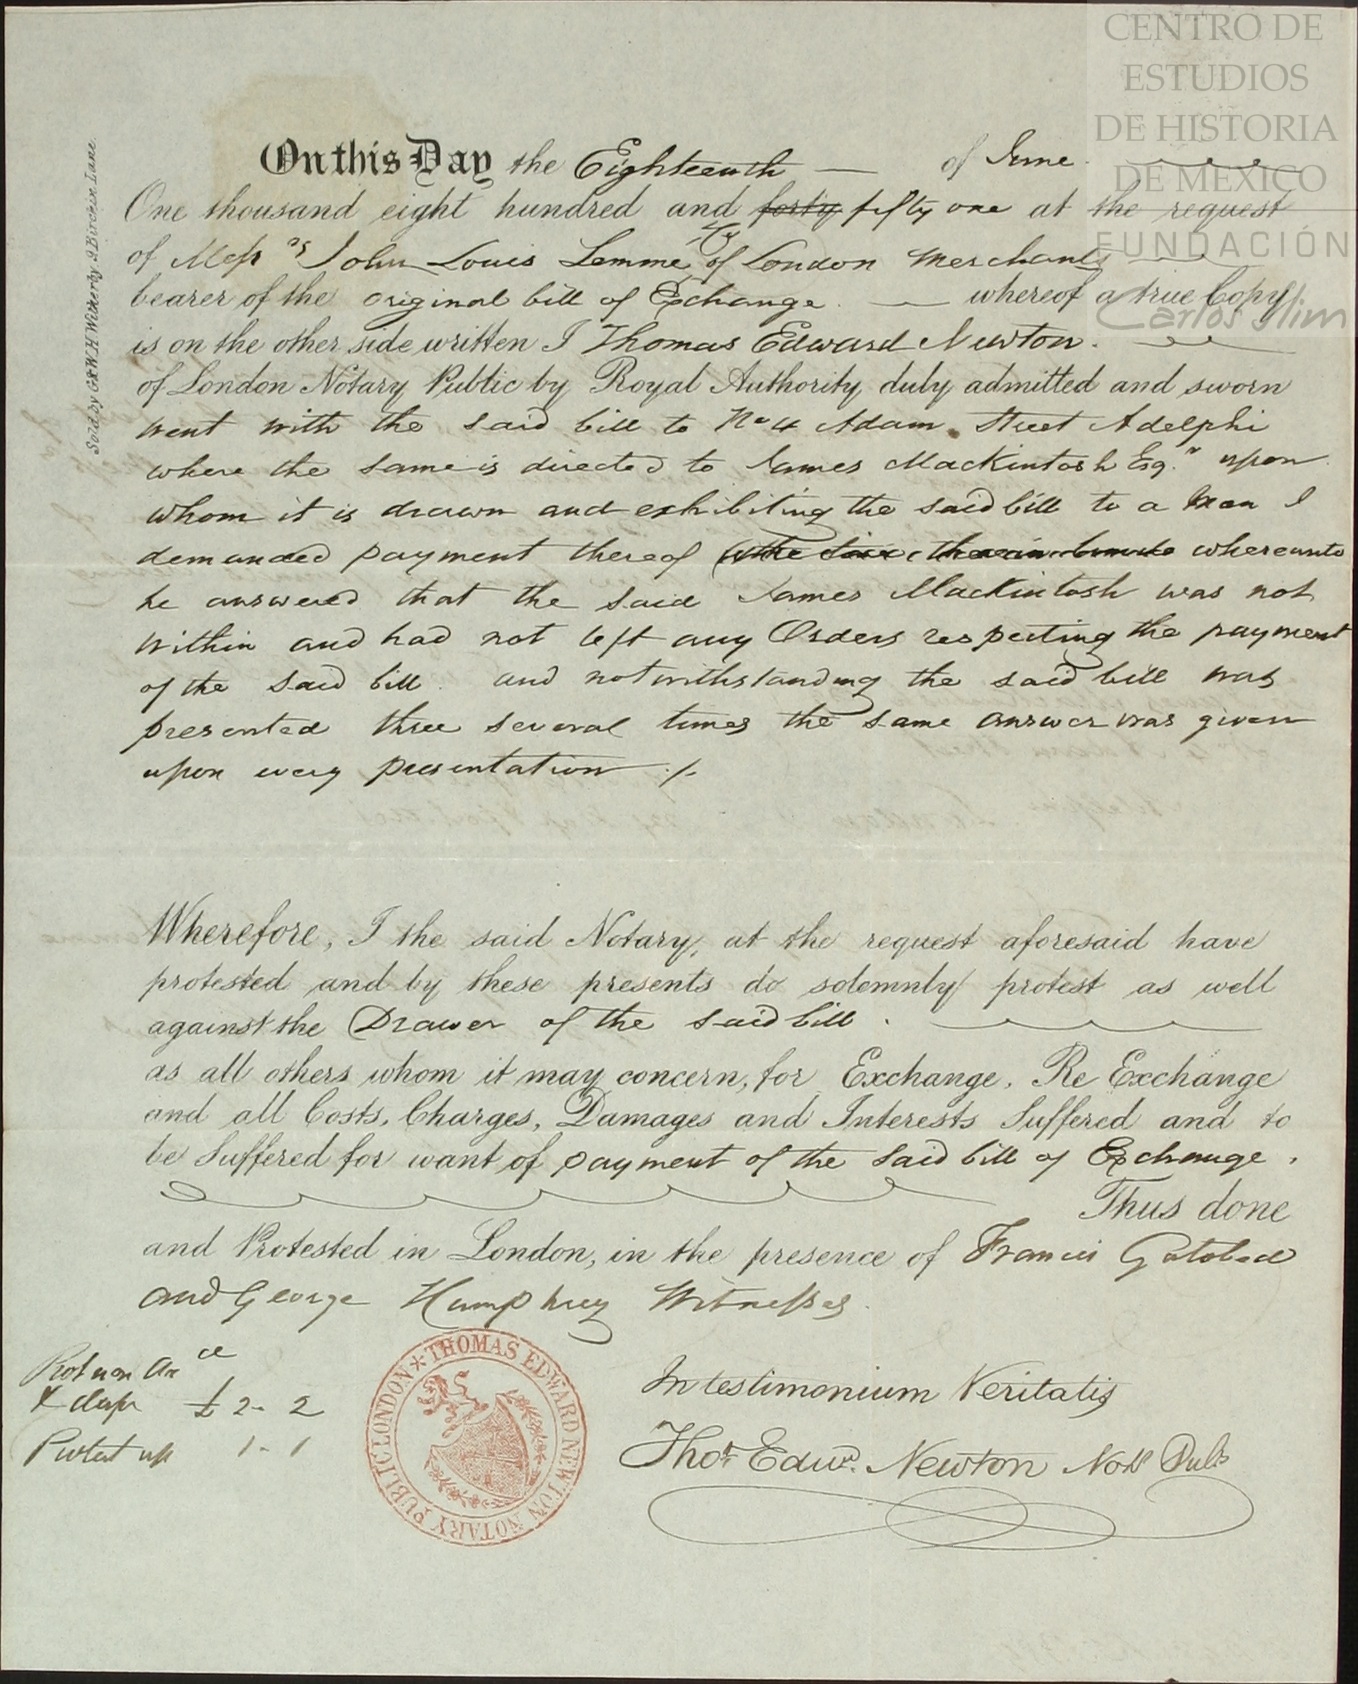 CENTRO DE
ESTUDIOS
DE HISTORIA
DE MEXICO
FUNDACIÓN
Carlos Slim
Sold by G & W. H. Witherby 9 Birchin Lane
On this Day the Eighteenth of June
One thousand eight hundred and forty fifty one at the request
of Messrs John Louis Lemme & Co of London Merchants
bearer of the original bill of Exchange whereof a true Copy
is on the other side written I Thomas Edward Newton
of London Notary Public by Royal Authority duly admitted and sworn
went with the said bill to No 4 Adam Street Adelphi
where the same is directed to James Mackintosh Esqr upon
whom it is drawn and exhibiting the said bill to a Man I
demanded payment thereof whereunto
he answered that the said James Mackintosh was not
within and had not left any Orders respecting the payment
of the said bill and notwithstanding the said bill was
presented three several times the same answer was given
upon every presentation ./.
Wherefore, I the said Notary, at the request aforesaid have
protested and by these presents do solemnly protest as well
against the Drawer of the said bill
as all others whom it may concern, for Exchange, Re Exchange
and all Costs, Charges, Damages and Interests Suffered and to
be Suffered for want of payment of the said bill of Exchange.
Thus done
and Protested in London, in the presence of Francis
and George Humphrey Witnesses
In testimonium Veritatis
Thos Edwd. Newton Noty Pub
£ 2 - 2
Protest 1 - 1
THOMAS EDWARD NEWTON NOTARY PUBLIC LONDON